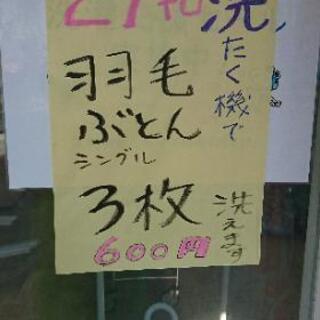 27キロ
洗たく機で
羽毛
ぶとん
シングル
3枚
洗えます
600円